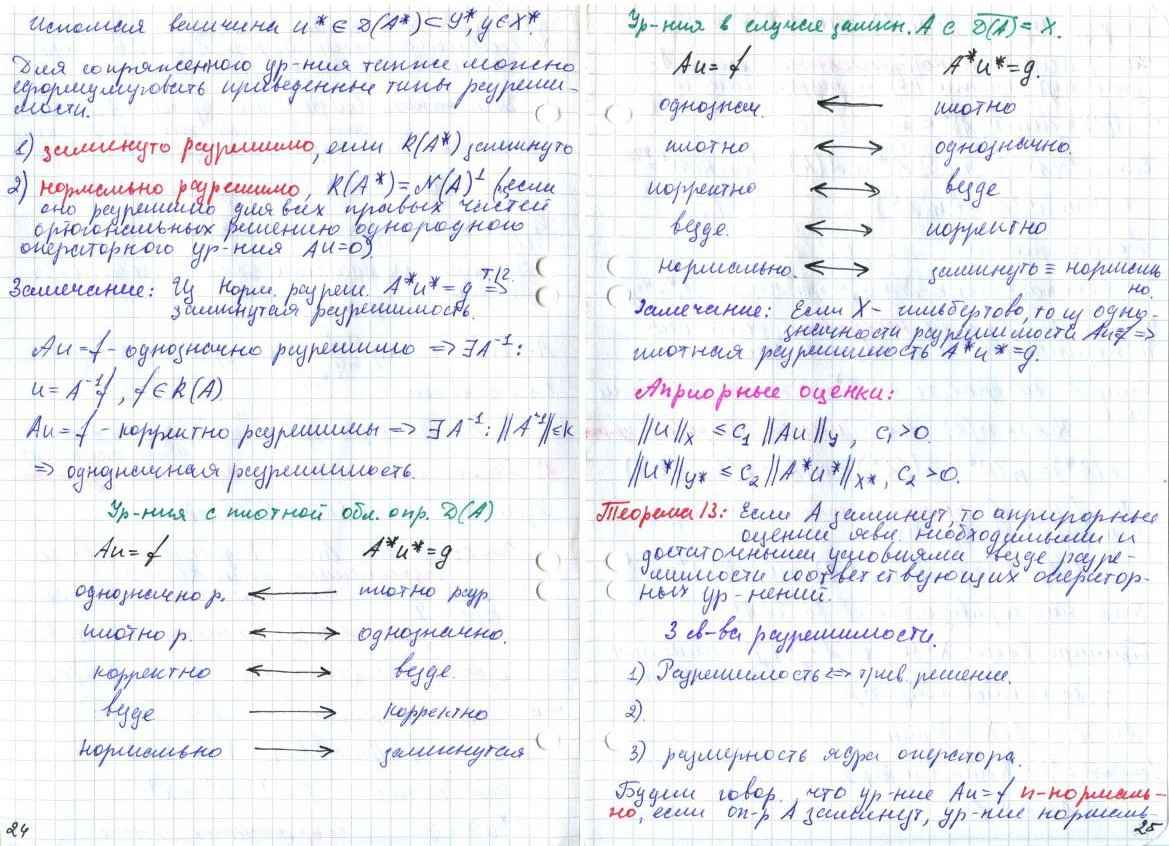 Искомая величина u* ∈ D(A*) ⊂ Y*, y ∈ X*.
Для сопряженного ур-ния также можно
сформулировать приведенные типы разреши-
мости.
1) замкнуто разрешимо, если R(A*) замкнуто
2) нормально разрешимо, R(A*) = N(A)⊥ (если
оно разрешимо для всех правых частей
ортогональных решению однородного
операторного ур-ния Au=0)
Замечание: Из норм. разреш. A*u* = g ⇒ Т.12.
замкнутая разрешимость.
Au = f - однозначно разрешимо ⇒ ∃A⁻¹:
u = A⁻¹f, f ∈ R(A)
Au = f - корректно разрешимы ⇒ ∃ A⁻¹: ||A⁻¹|| ≤ k
⇒ однозначная разрешимость.
Ур-ния с плотной обл. опр. D(A)
Au = f A*u* = g
однозначно р. ⟵ плотно разр.
плотно р. ⟷ однозначно.
корректно ⟷ везде.
везде ⟶ корректно
нормально ⟶ замкнутая
24
Ур-ния в случае замкн. A с D(A) = X.
Au = f A*u* = g.
однозначн. ⟵ плотно
плотно ⟷ однозначно.
корректно ⟷ везде
везде. ⟷ корректно
нормально. ⟷ замкнуто ≡ нормаль
но.
Замечание: Если X - гильбертово, то из одно-
значности разрешимости Au=f ⇒
плотная разрешимость A*u* = g.
Априорные оценки:
||u||X ≤ c₁ ||Au||Y, c₁ > 0.
||u*||Y* ≤ c₂ ||A*u*||X*, c₂ > 0.
Теорема 13: Если A замкнут, то априорные
оценки явл. необходимыми и
достаточными условиями везде разре-
шимости соответствующих оператор-
ных ур-нений.
3 св-ва разрешимости.
1) Разрешимость ⇔ трив. решение.
2).
3) размерность ядра оператора.
Будем говор. что ур-ние Au = f n-нормаль-
но, если оп-р A замкнут, ур-ние нормаль-
25